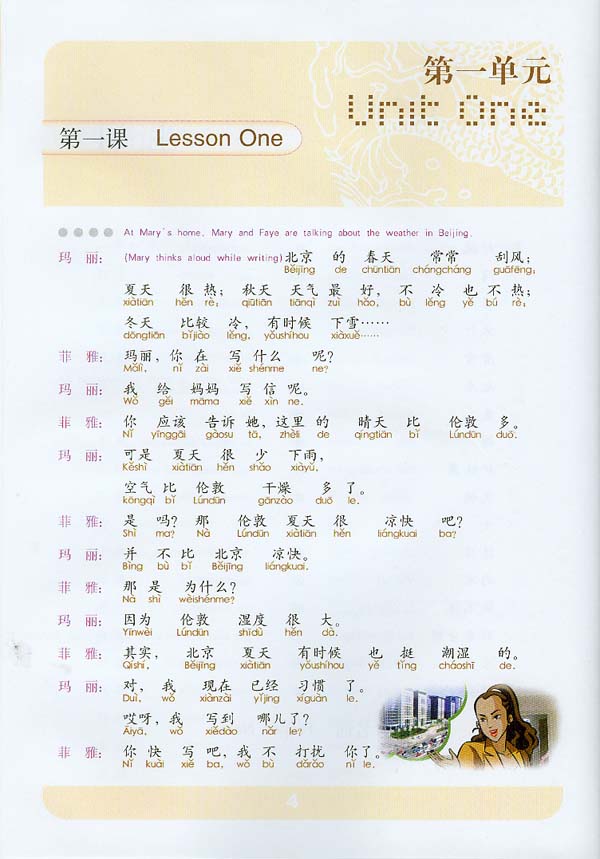 第一单元
Unit One
第一课 Lesson One
At Mary's home, Mary and Faye are talking about the weather in Beijing.
玛丽： (Mary thinks aloud while writing)北京 的 春天 常常 刮风；
Běijīng de chūntiān chángcháng guāfēng;
夏天 很 热；秋天 天气 最 好，不 冷 也 不 热；
xiàtiān hěn rè; qiūtiān tiānqì zuì hǎo, bù lěng yě bú rè;
冬天 比较 冷，有时候 下雪……
dōngtiān bǐjiào lěng, yǒushíhou xiàxuě……
菲雅： 玛丽，你 在 写 什么 呢？
Mǎlì, nǐ zài xiě shénme ne?
玛丽： 我 给 妈妈 写 信 呢。
Wǒ gěi māma xiě xìn ne.
菲雅： 你 应该 告诉 她，这里 的 晴天 比 伦敦 多。
Nǐ yīnggāi gàosu tā, zhèli de qíngtiān bǐ Lúndūn duō.
玛丽： 可是 夏天 很 少 下雨，
Kěshì xiàtiān hěn shǎo xiàyǔ,
空气 比 伦敦 干燥 多 了。
kōngqì bǐ Lúndūn gānzào duō le.
菲雅： 是 吗？那 伦敦 夏天 很 凉快 吧？
Shì ma? Nà Lúndūn xiàtiān hěn liángkuai ba?
玛丽： 并 不 比 北京 凉快。
Bìng bù bǐ Běijīng liángkuai.
菲雅： 那 是 为什么？
Nà shì wèishénme?
玛丽： 因为 伦敦 湿度 很 大。
Yīnwèi Lúndūn shīdù hěn dà.
菲雅： 其实，北京 夏天 有时候 也 挺 潮湿 的。
Qíshí, Běijīng xiàtiān yǒushíhou yě tǐng cháoshī de.
玛丽： 对，我 现在 已经 习惯 了。
Duì, wǒ xiànzài yǐjīng xíguàn le.
哎呀，我 写到 哪儿了？
Āiyā, wǒ xiědào nǎr le?
菲雅： 你 快 写 吧，我 不 打扰 你了。
Nǐ kuài xiě ba, wǒ bù dǎrǎo nǐ le.
4